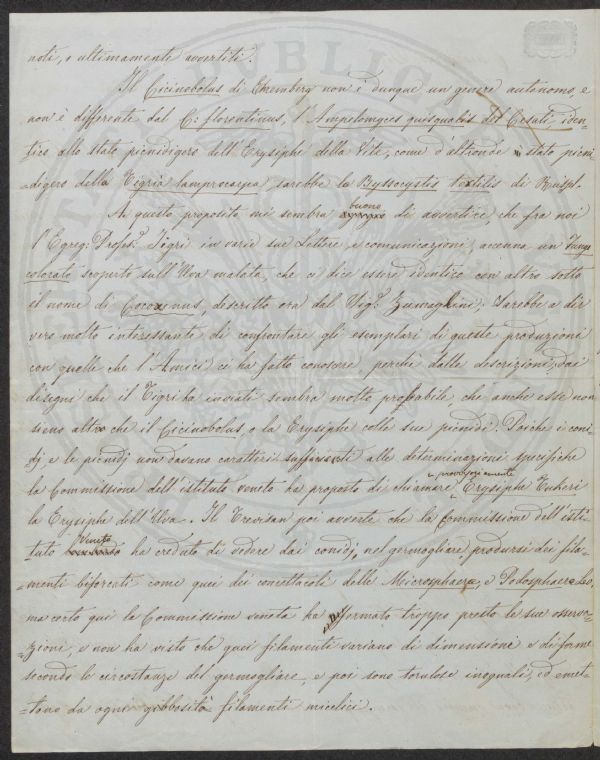 noti, e ultimamente avvertiti.
Il Cicinobolus di Ehremberg non è dunque un genere autonomo, e
non è differente dal C: florentinus, l'Ampelomyces quisqualis del Cesati, iden-
tico allo stato picnidigero dell'Erysiphe della Vite, come d'altronde stato picni
digero della Tigria lamprocarpa, sarebbe la Byssocystis textilis di
A questo proposito mi sembra buono di avvertire, che fra noi
l'Egreg: Profes.r Tigri in varie sue Lettere, e comunicazioni, accenna un Fungo
colorato scoperto sull'Uva malata, che ei dice essere identico con altro sotto
il nome di descritto ora dal Sig.r Sarebbe a dir
vero molto interessante di confrontare gli esemplari di queste produzioni
con quelle che l'Amici ci ha fatto conoscere, perchè dalle descrizioni, dai
disegni che il Tigri ha inviati sembra molto probabile, che anche esse non
sieno altro che il Cicinobolus, o la Erysiphe colle sue picnidi. Poichè i coni-
dj, e le picnidj non davano caratteri sufficienti alle determinazioni specifiche
la Commissione dell'istituto veneto ha proposto di chiamare provvisoriamente Erysiphe Tuckeri
la Erysiphe dell'Uva. Il Trevisan poi avverte che la Commissione dell'isti-
tuto Veneto ha creduto di vedere dai conidj, nel germogliare, prodursi dei fila-
-menti biforcati come quei dei concettacoli delle Microsphaera, e Podosphaera Lev,
ma certo qui la Commissione veneta ha fermato troppo presto le sue osserva-
-zioni, e non ha visto che quei filamenti variano di dimensione e di forme
secondo le circostanze del germogliare, e poi sono torulose inoguali, ed emet-
-tono da ogni gibbosità filamenti micelici.